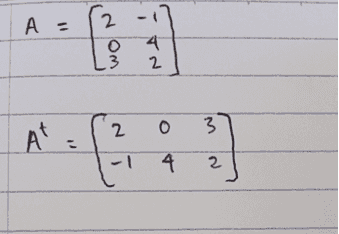 A = [2 -1
0 4
3 2]
A^t = [2 0 3
-1 4 2]